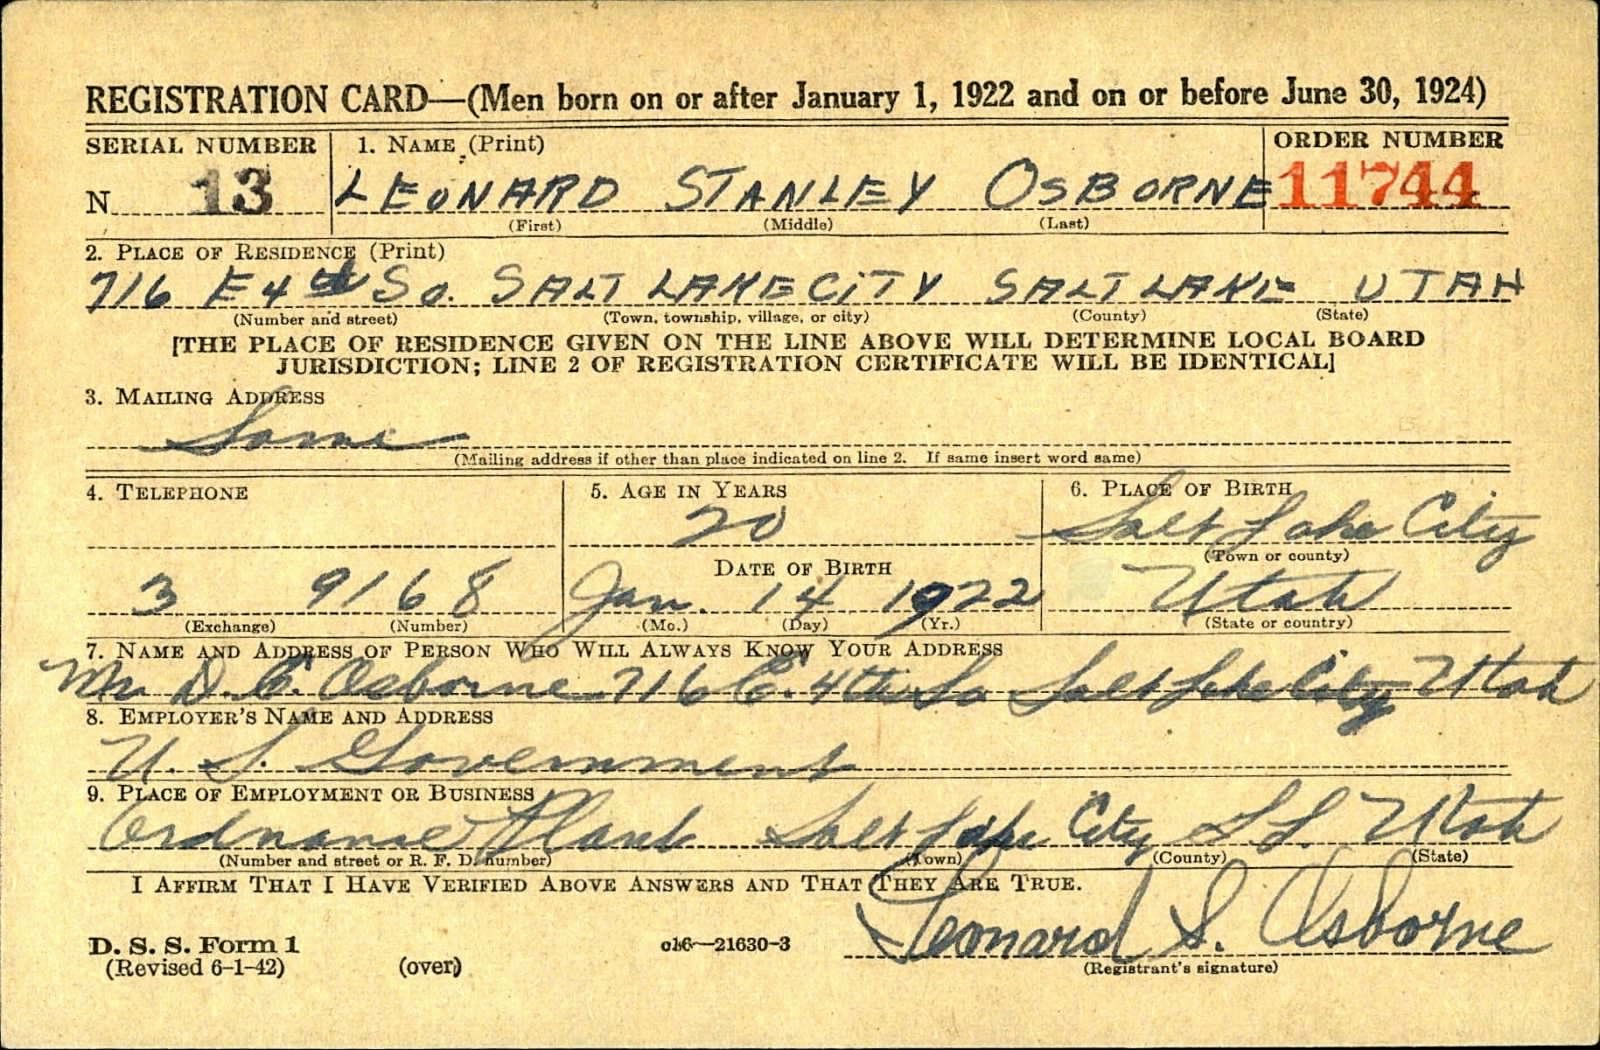 REGISTRATION CARD—(Men born on or after January 1, 1922 and on or before June 30, 1924)
SERIAL NUMBER 1. NAME (Print) ORDER NUMBER
N 13 LEONARD STANLEY OSBORNE 11744
(First) (Middle) (Last)
2. PLACE OF RESIDENCE (Print)
716 E 4th So. SALT LAKE CITY SALT LAKE UTAH
(Number and street) (Town, township, village, or city) (County) (State)
[THE PLACE OF RESIDENCE GIVEN ON THE LINE ABOVE WILL DETERMINE LOCAL BOARD
JURISDICTION; LINE 2 OF REGISTRATION CERTIFICATE WILL BE IDENTICAL]
3. MAILING ADDRESS
Same
(Mailing address if other than place indicated on line 2. If same insert word same)
4. TELEPHONE 5. AGE IN YEARS 6. PLACE OF BIRTH
20 Salt Lake City
(Town or county)
DATE OF BIRTH
3 9168 Jan. 14 1922 Utah
(Exchange) (Number) (Mo.) (Day) (Yr.) (State or country)
7. NAME AND ADDRESS OF PERSON WHO WILL ALWAYS KNOW YOUR ADDRESS
Mr D. E. Osborne 716 E. 4th So Salt Lake City Utah
8. EMPLOYER'S NAME AND ADDRESS
U. S. Government
9. PLACE OF EMPLOYMENT OR BUSINESS
Ordnance Plant Salt Lake City S L. Utah
(Number and street or R. F. D. number) (Town) (County) (State)
I AFFIRM THAT I HAVE VERIFIED ABOVE ANSWERS AND THAT THEY ARE TRUE.
Leonard S. Osborne
D. S. S. Form 1 16—21630-3
(Revised 6-1-42) (over) (Registrant's signature)